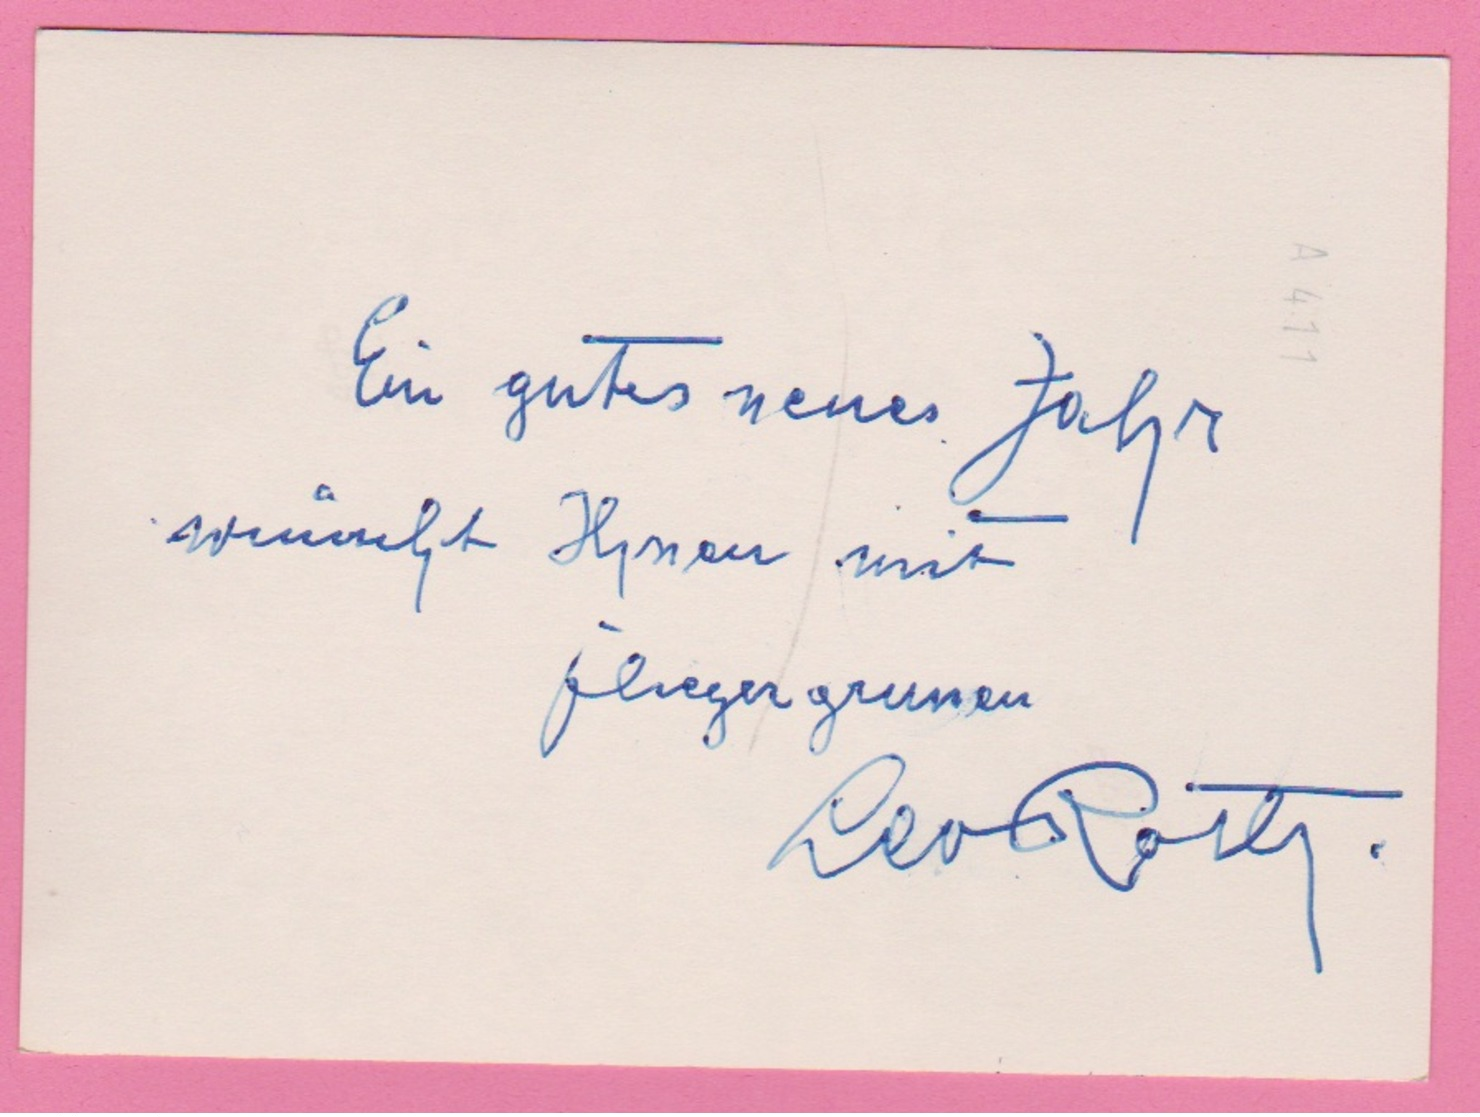 Ein gutes neues Jahr
wünscht Ihnen mit
Fliegergrüssen
Leo Roth.
A 411